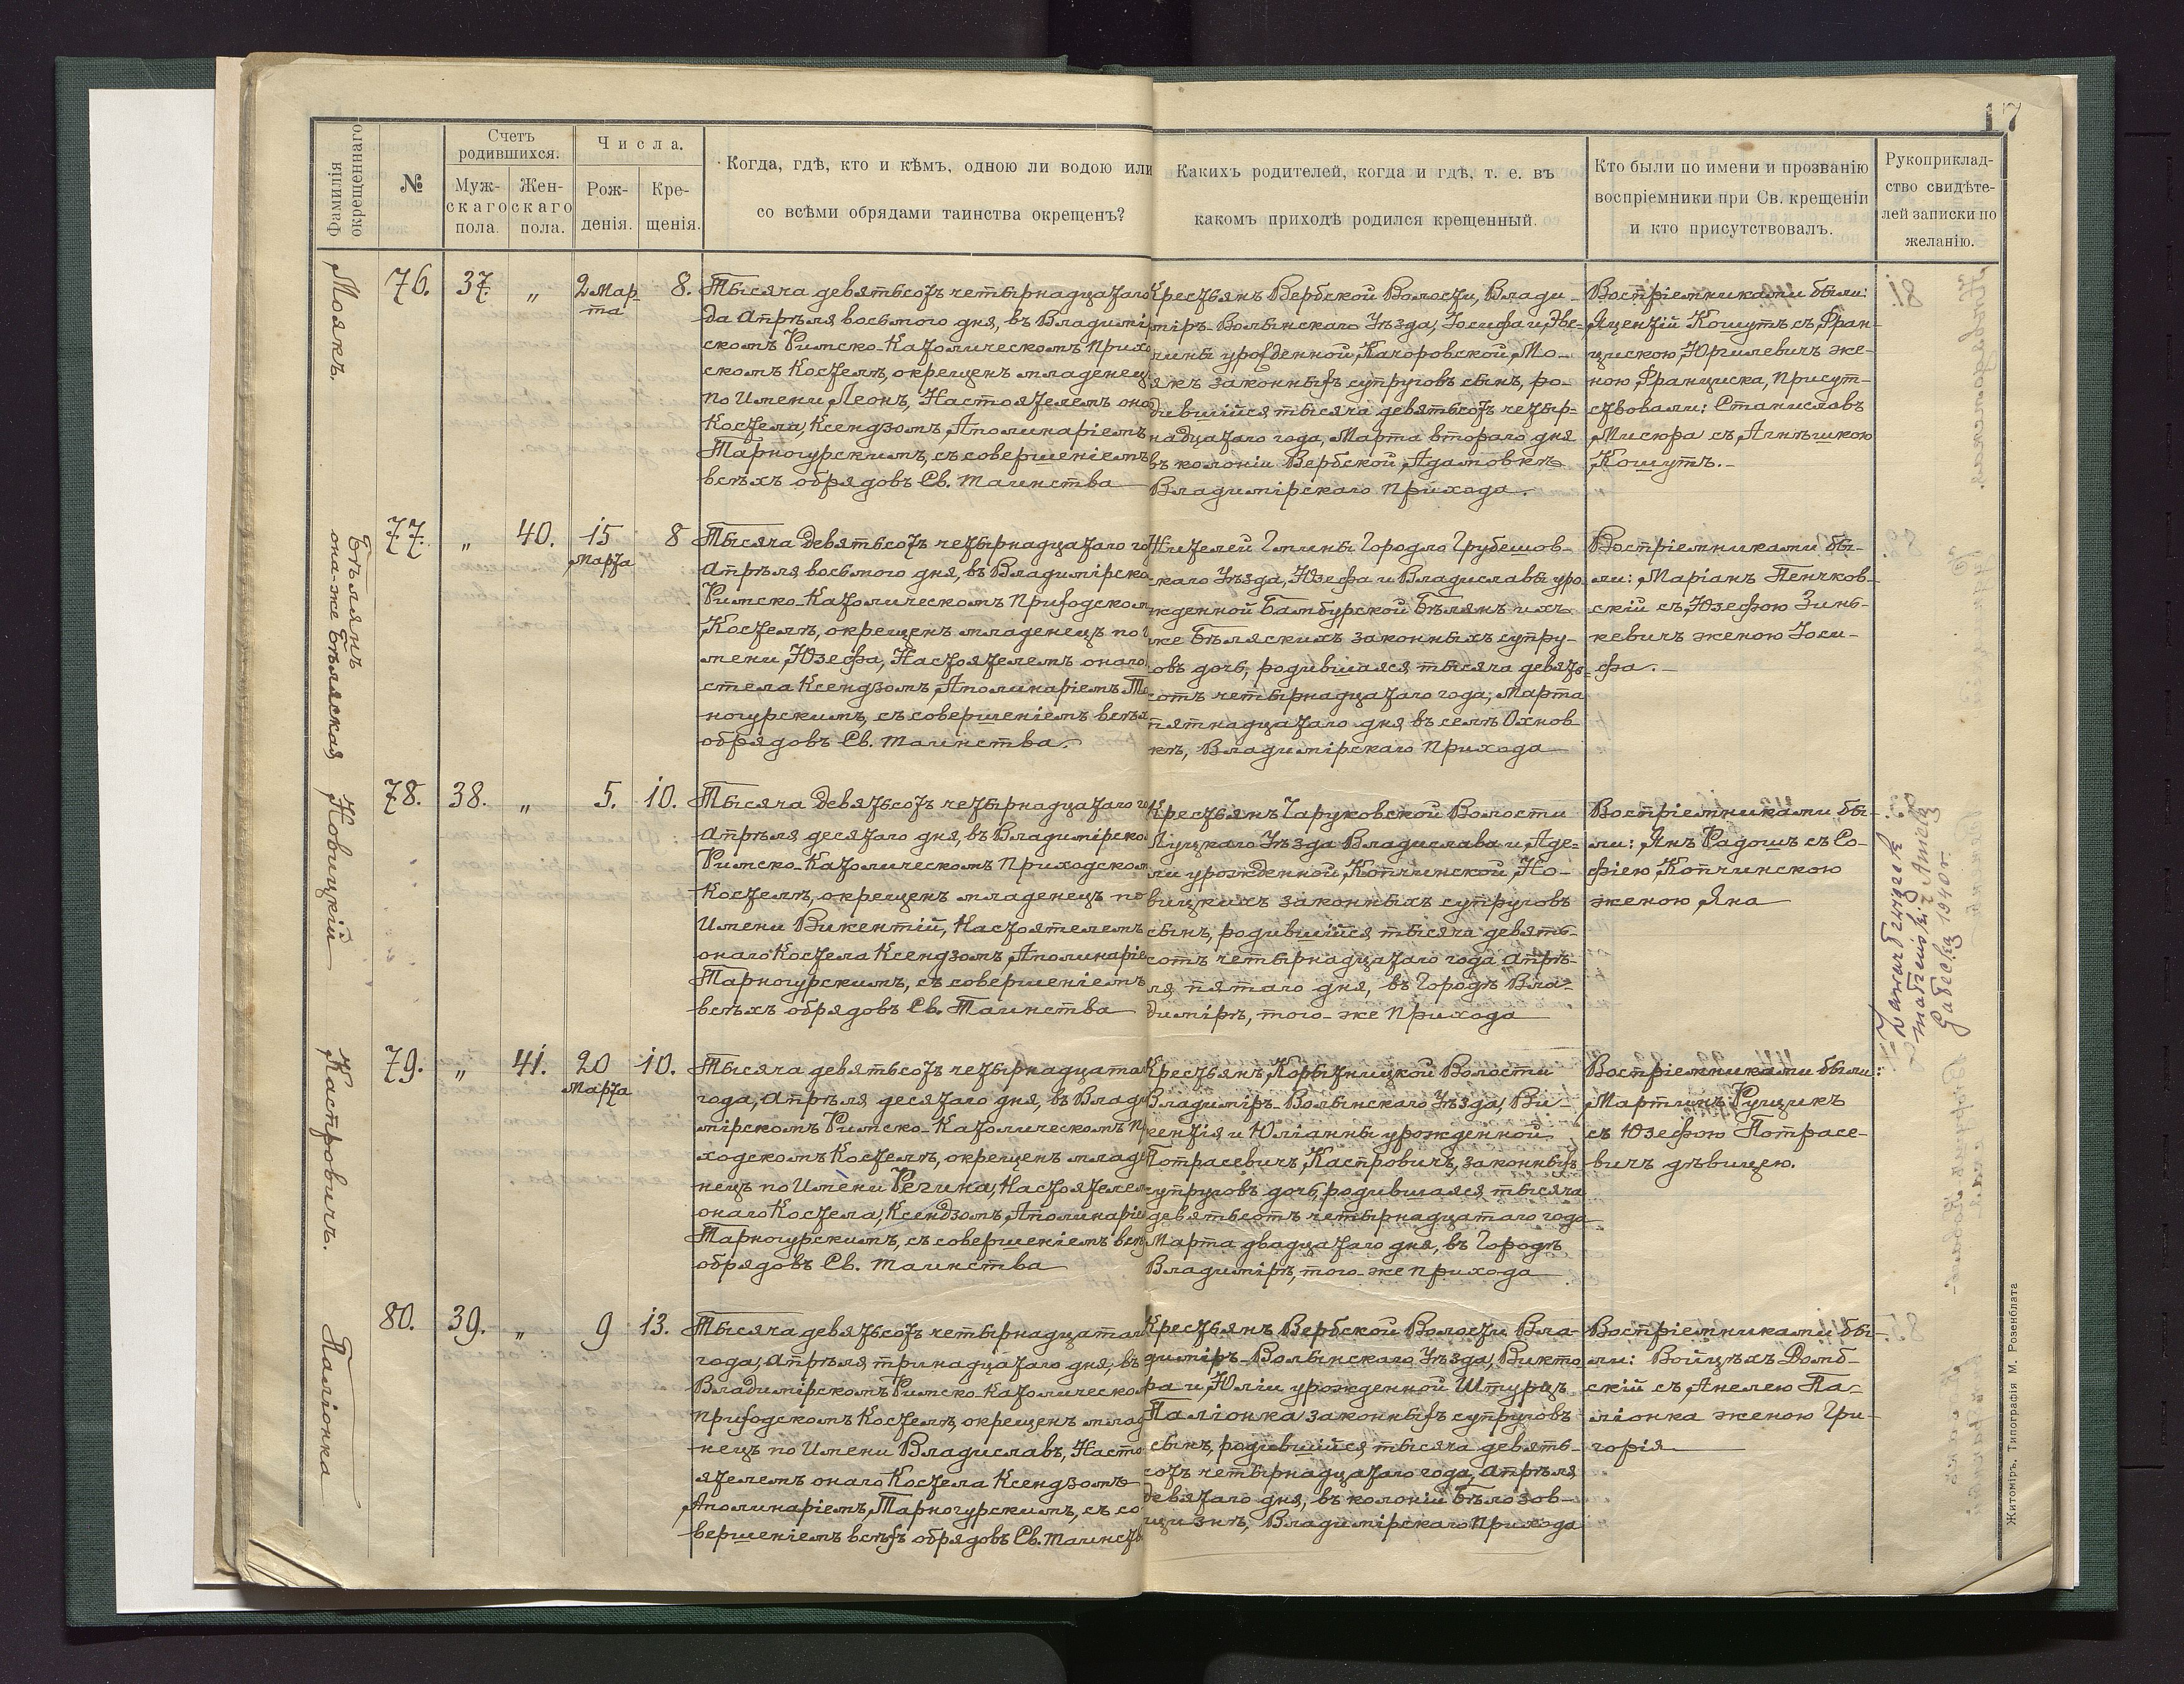 17
Фамилія
окрещеннаго
№
Счетъ
родившихся.
Муж-
скаго
пола.
Жен-
скаго
пола.
Числа.
Рож-
денія.
Кре-
щенія.
Когда, гдѣ, кто и кѣмъ, одною ли водою или
со всѣми обрядами таинства окрещенъ?
Какихъ родителей, когда и гдѣ, т. е. въ
какомъ приходѣ родился крещенный.
Кто были по имени и прозванію
воспріемники при Св. крещеніи
и кто присутствовалъ.
Рукоприклад-
ство свидѣте-
лей записки по
желанію.
Моякъ.
76.
37.
"
2 Мар-
та
8.
Тысяча девятьсотъ четырнадцатаго
да Апрѣля восьмого дня, въ Владимі
скомъ Римско-Католическомъ Прихо
скомъ Костелѣ, окрещенъ младенец
по Имени Леонъ, Настоятелемъ она
Костела, Ксендзомъ, Аполинаріемъ
Тарногурскимъ, съ совершеніемъ
всѣхъ обрядовъ Св. таинства
Крестьянъ Вербской Волости, Влади-
міръ-Волынскаго Уѣзда, Іосифа и Эве-
лины урожденной, Качоровской, Мо-
якъ законныхъ супруговъ сынъ, ро-
дившійся тысяча девятьсотъ четыр-
надцатаго года, Марта второго дня
въ колоніи Вербской, Адамовкѣ
Владимірскаго Прихода.
Воспріемниками были:
Яцентій Кошутъ съ Фран-
цискою, Юргилевичъ же-
ною Франциска, присут-
ствовали: Станиславъ
Мисюра съ Агнѣшкою
Кошутъ.-
Бѣлянъ
она-же Бѣляская
77.
"
40.
15
Марта
8
Тысяча девятьсотъ четырнадцатаго го
Апрѣля восьмого дня, въ Владимірско
Римско-Католическомъ Приходском
Костелѣ, окрещенъ младенецъ по И
мени, Юзефа, Настоятелемъ онаго
стела Ксендзомъ, Аполинаріемъ Та
ногурскимъ, съ совершеніемъ всѣх
обрядовъ Св. таинства.
Жителей Гмины Городло Грубешов-
скаго Уѣзда, Юзефа и Владиславы уро-
жденной Бамбурской Бѣлянъ ихъ
же Бѣляскихъ законныхъ супру-
овъ дочь, родившаяся тысяча девять-
сотъ четырнадцатаго года, Марта
пятнадцатаго дня въ селѣ Охнов-
кѣ, Владимірскаго Прихода
Воспріемниками бы-
ли: Маріанъ Пенчков-
скій съ Юзефою Зинь-
кевичъ женою Іоси-
фа.-
Новицкій
78.
38.
"
5.
10.
Тысяча девятьсотъ четырнадцатаго го
Апрѣля десятаго дня, въ Владимірско
Римско-Католическомъ Приходском
Костелѣ, окрещенъ младенецъ по
Имени Викентій, Настоятелемъ
онаго Костела Ксендзомъ, Аполинаріе
Тарногурскимъ, съ совершеніемъ
всѣхъ обрядовъ Св. Таинства
Крестьянъ Чаруковской Волости
Луцкаго Уѣзда Владислава и Аде-
ли урожденной, Копчинской, Но-
вицкихъ законныхъ супруговъ
сынъ, родившійся тысяча девять-
сотъ четырнадцатаго года Апрѣ-
ля пятаго дня, въ Городѣ Вла-
димірѣ, того-же Прихода
Воспріемниками бы-
ли: Янъ Радошъ съ Со-
фіею, Копчинскою
женою Яна
Каспровичъ.
79.
"
41.
20
Марта
10.
Тысяча девятьсотъ четырнадцата
года, Апрѣля десятаго дня, въ Влади
мірскомъ Римско-Католическомъ П
ходскомъ Костелѣ, окрещенъ млад
нецъ по Имени Регина, Настоятелем
онаго Костела, Ксендзомъ, Аполинаріе
Тарногурскимъ, съ совершеніемъ всѣ
обрядовъ Св. таинства
Крестьянъ, Корытницкой Волости
Владиміръ-Волынскаго Уѣзда, Ви-
кентія и Юліанны урожденной
Потрасевичъ, Каспровичъ, законныхъ
супруговъ дочь, родившаяся тысяча
девятьсотъ четырнадцатаго года
Марта двадцатаго дня, въ Городѣ
Владимірѣ, того-же прихода
Воспріемниками были:
Мартинъ Рущикъ
съ Юзефою Потрасе-
вичъ дѣвицею.
Паліонка
80.
39.
"
9
13.
Тысяча девятьсотъ четырнадцатаг
года, Апрѣля тринадцатаго дня, въ
Владимірскомъ Римско-Католическо
Приходскомъ Костелѣ, окрещенъ млад
нецъ по Имени Владиславъ, Насто
ятелемъ онаго Костела Ксендзомъ
Аполинаріемъ, Тарногурскимъ, съ со
вершеніемъ всѣхъ обрядовъ Св. таинств
Крестьянъ Вербской Волости Вла-
диміръ-Волынскаго Уѣзда, Викто-
ра и Юліи урожденной Штурцъ
Паліонка законныхъ супруговъ
сынъ, родившійся тысяча девять-
сотъ четырнадцатаго года, Апрѣля
девятаго дня, въ колоніи Бѣлозов-
щизнѣ, Владимірскаго Прихода
Воспріемниками бы-
ли: Войцѣхъ Домб-
скій съ Анелею Па-
ліонка женою Гри-
горія
małżeński z Anielą
1940 r.
Житоміръ. Типографія М. Розенблата